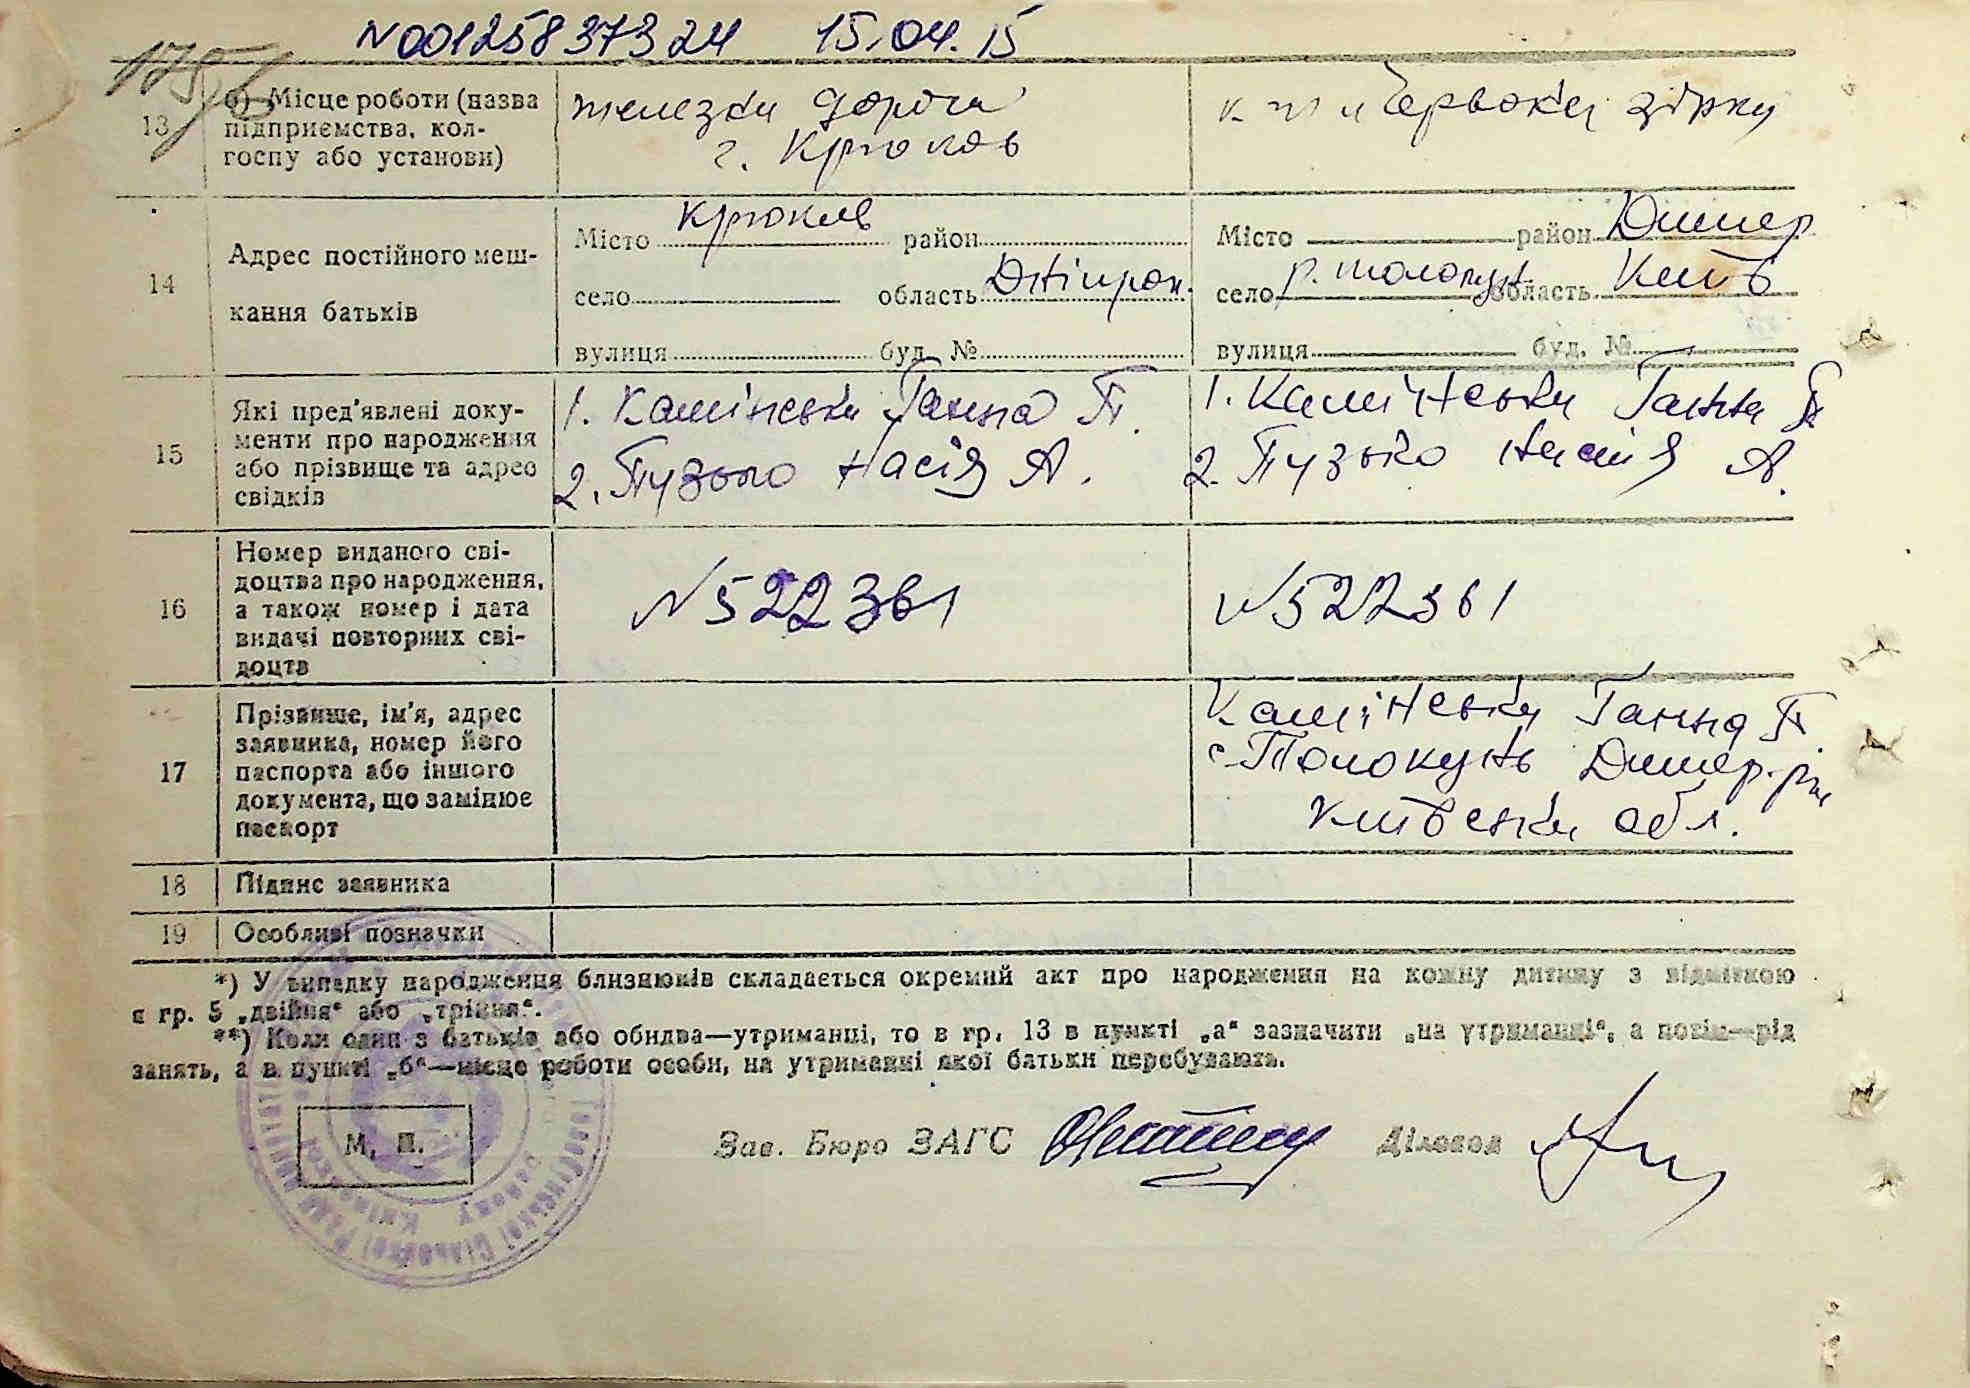 N00125837324 15.04.15
13
б) Місце роботи (назва
підприємства, кол-
госпу або установи)
железки дороги
г. Крюков
к-т „Червоки зірку
14
Адрес постійного меш-
кання батьків
Місто Крюков район
село область Дніпроп.
вулиця буд. №
Місто район Димер
село область Київ
вулиця буд. №
15
Які пред'явлені доку-
менти про народження
або прізвище та адрес
свідків
1. Камінськи Ганна П.
2. Пузько Насія А.
1. Камінськи Ганна П
2. Пузько Настія А.
16
Номер виданого сві-
доцтва про народження,
а також номер і дата
видачі повторних сві-
доцтв
N522361
N522361
17
Прізвище, ім'я, адрес
заявника, номер його
паспорта або іншого
документа, що замінює
паспорт
Камінськи Ганна П.
с. Толокунь Димер. р-н
Київськи обл.
18 Підпис заявника
19 Особливі позначки
*) У випадку народження близнюків складається окремий акт про народження на кожну дитину з відміткою
в гр. 5 „двійня“ або „трійня“.
**) Коли один з батьків або обидва—утриманці, то в гр. 13 в пункті „а“ зазначити „на утриманці“, а потім—рід
занять, а в пункті „б“—місце роботи особи, на утриманні якої батьки перебувають.
М. П.
Зав. Бюро ЗАГС
Діловод